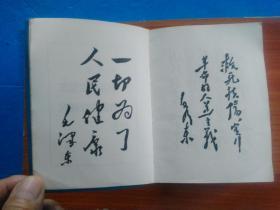 一切为了
人民健康
毛泽东
救死扶傷，实行
革命的人道主義
毛泽东